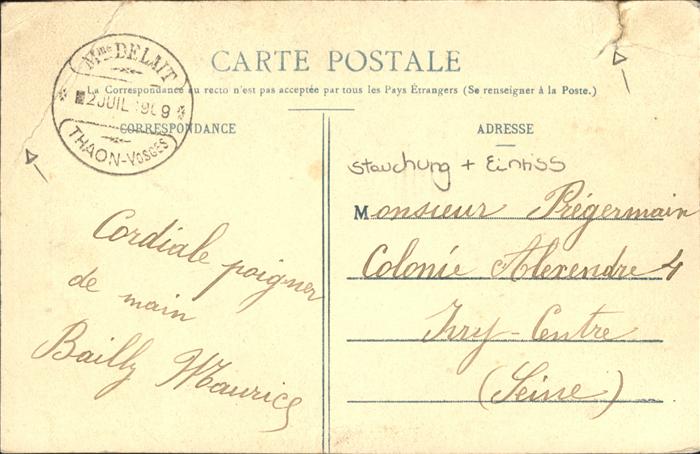 Mme DELAIT
2 JUIL 1909
THAON-VOSGES
CARTE POSTALE
La Correspondance au recto n'est pas acceptée par tous les Pays Étrangers (Se renseigner à la Poste.)
CORRESPONDANCE
ADRESSE
Stauchung + Einriss
Monsieur Prégermain
Colonie Alexendre 4
Ivry-Centre
(Seine)
Cordiale poigner
de main
Bailly Maurice